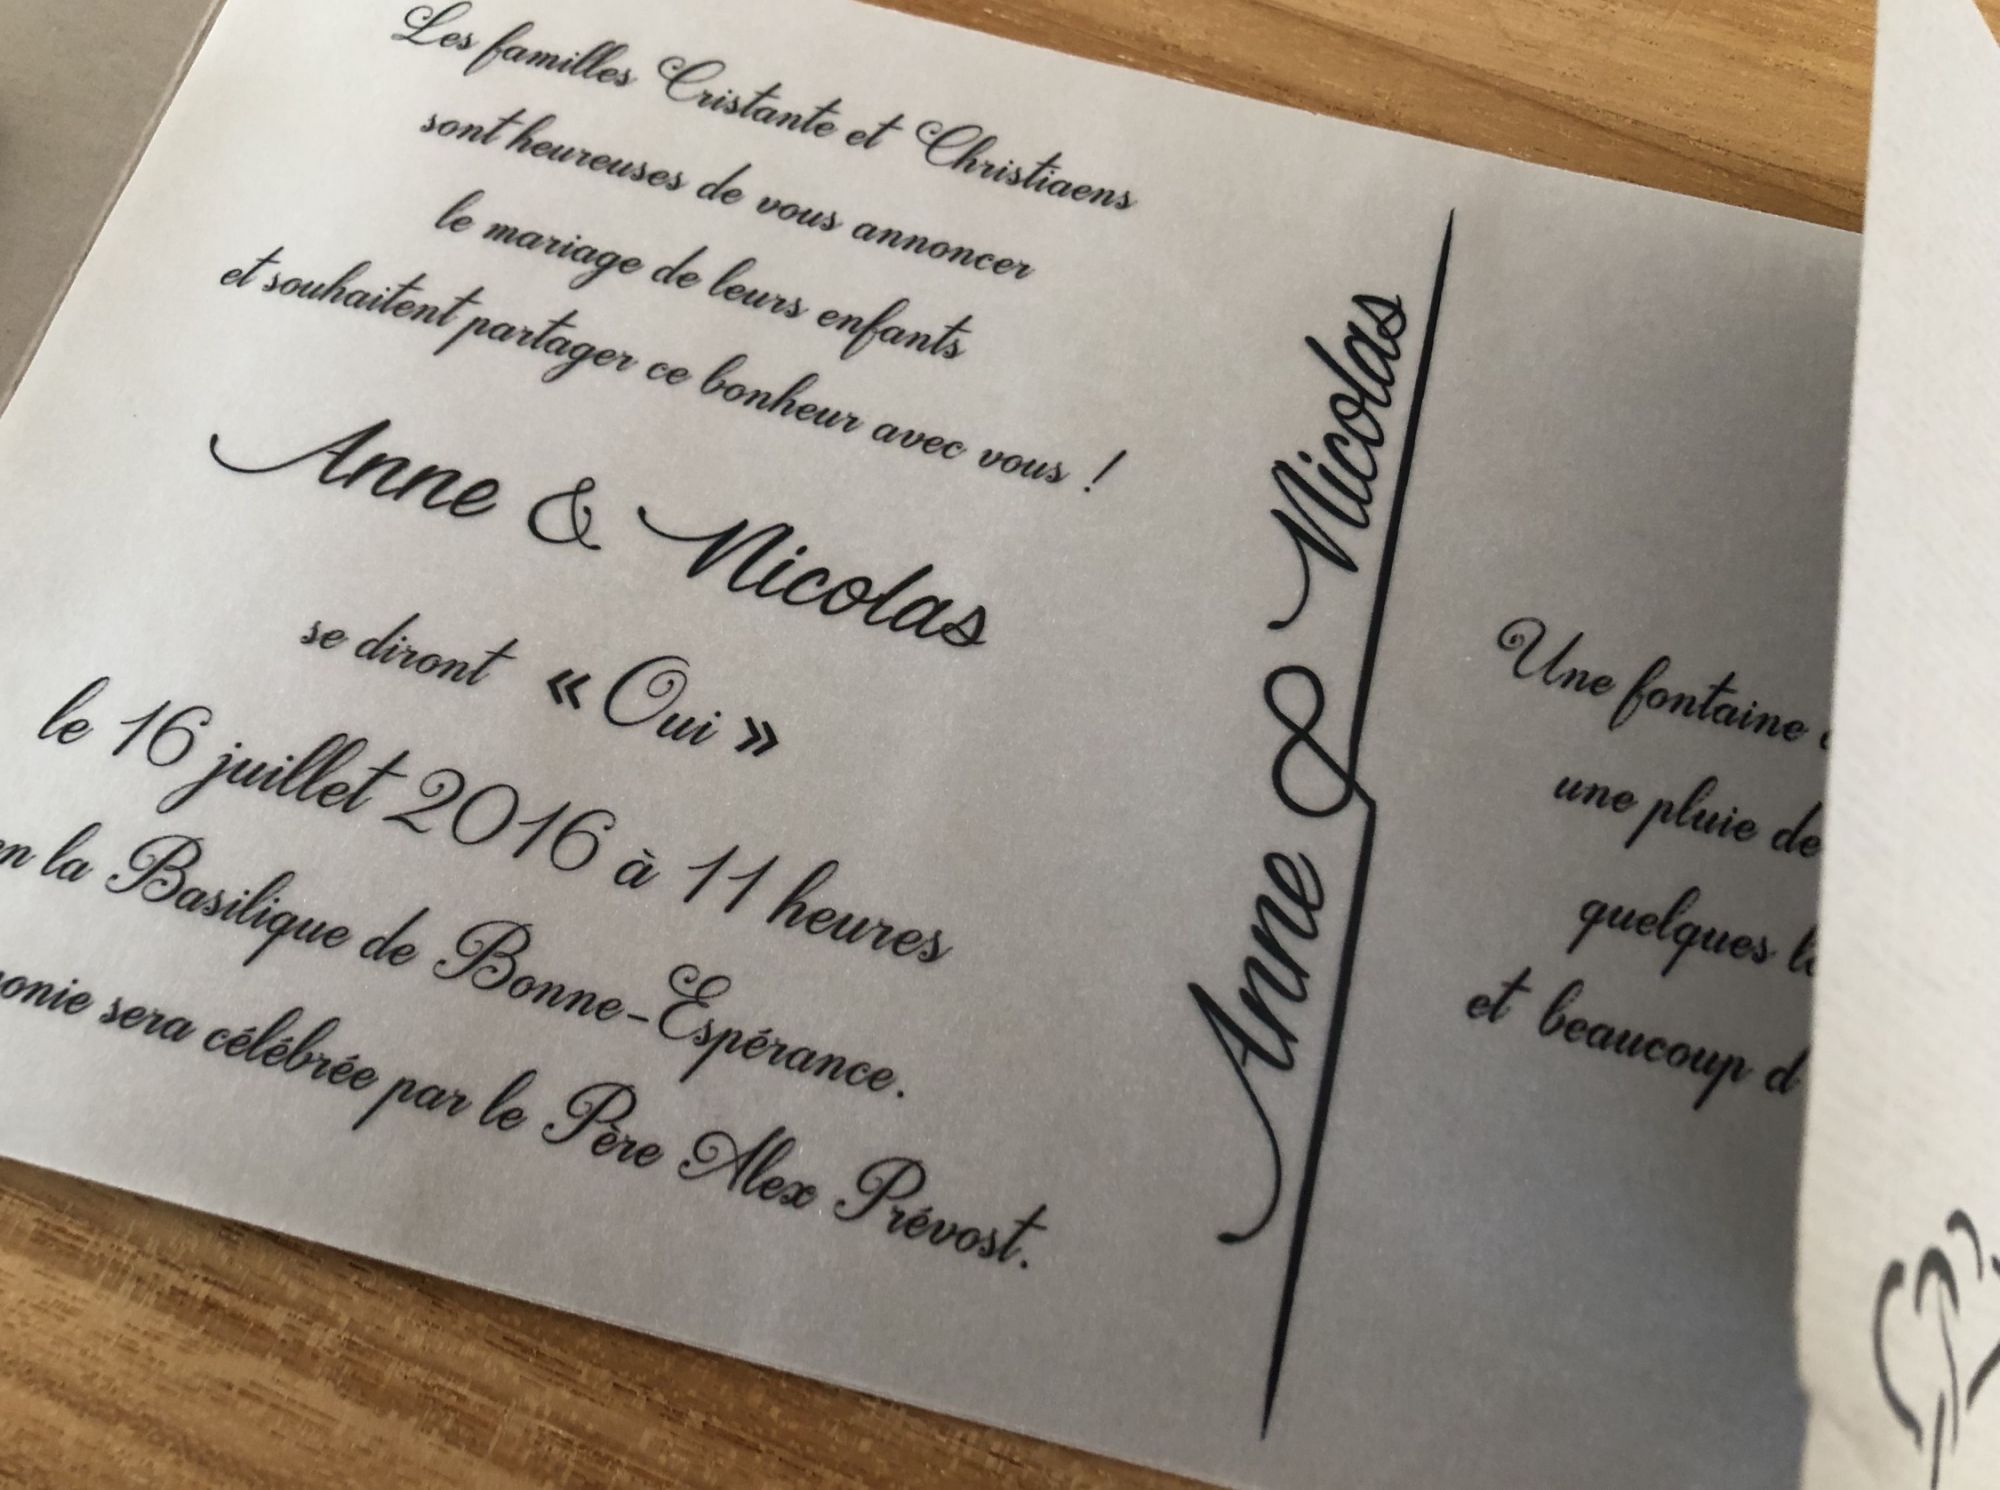 Les familles Cristante et Christiaens
sont heureuses de vous annoncer
le mariage de leurs enfants
et souhaitent partager ce bonheur avec vous !
Anne & Nicolas
se diront « Oui »
le 16 juillet 2016 à 11 heures
la Basilique de Bonne-Espérance.
sera célébrée par le Père Alex Prévost.
Anne & Nicolas
Une fontaine
une pluie de
quelques
et beaucoup